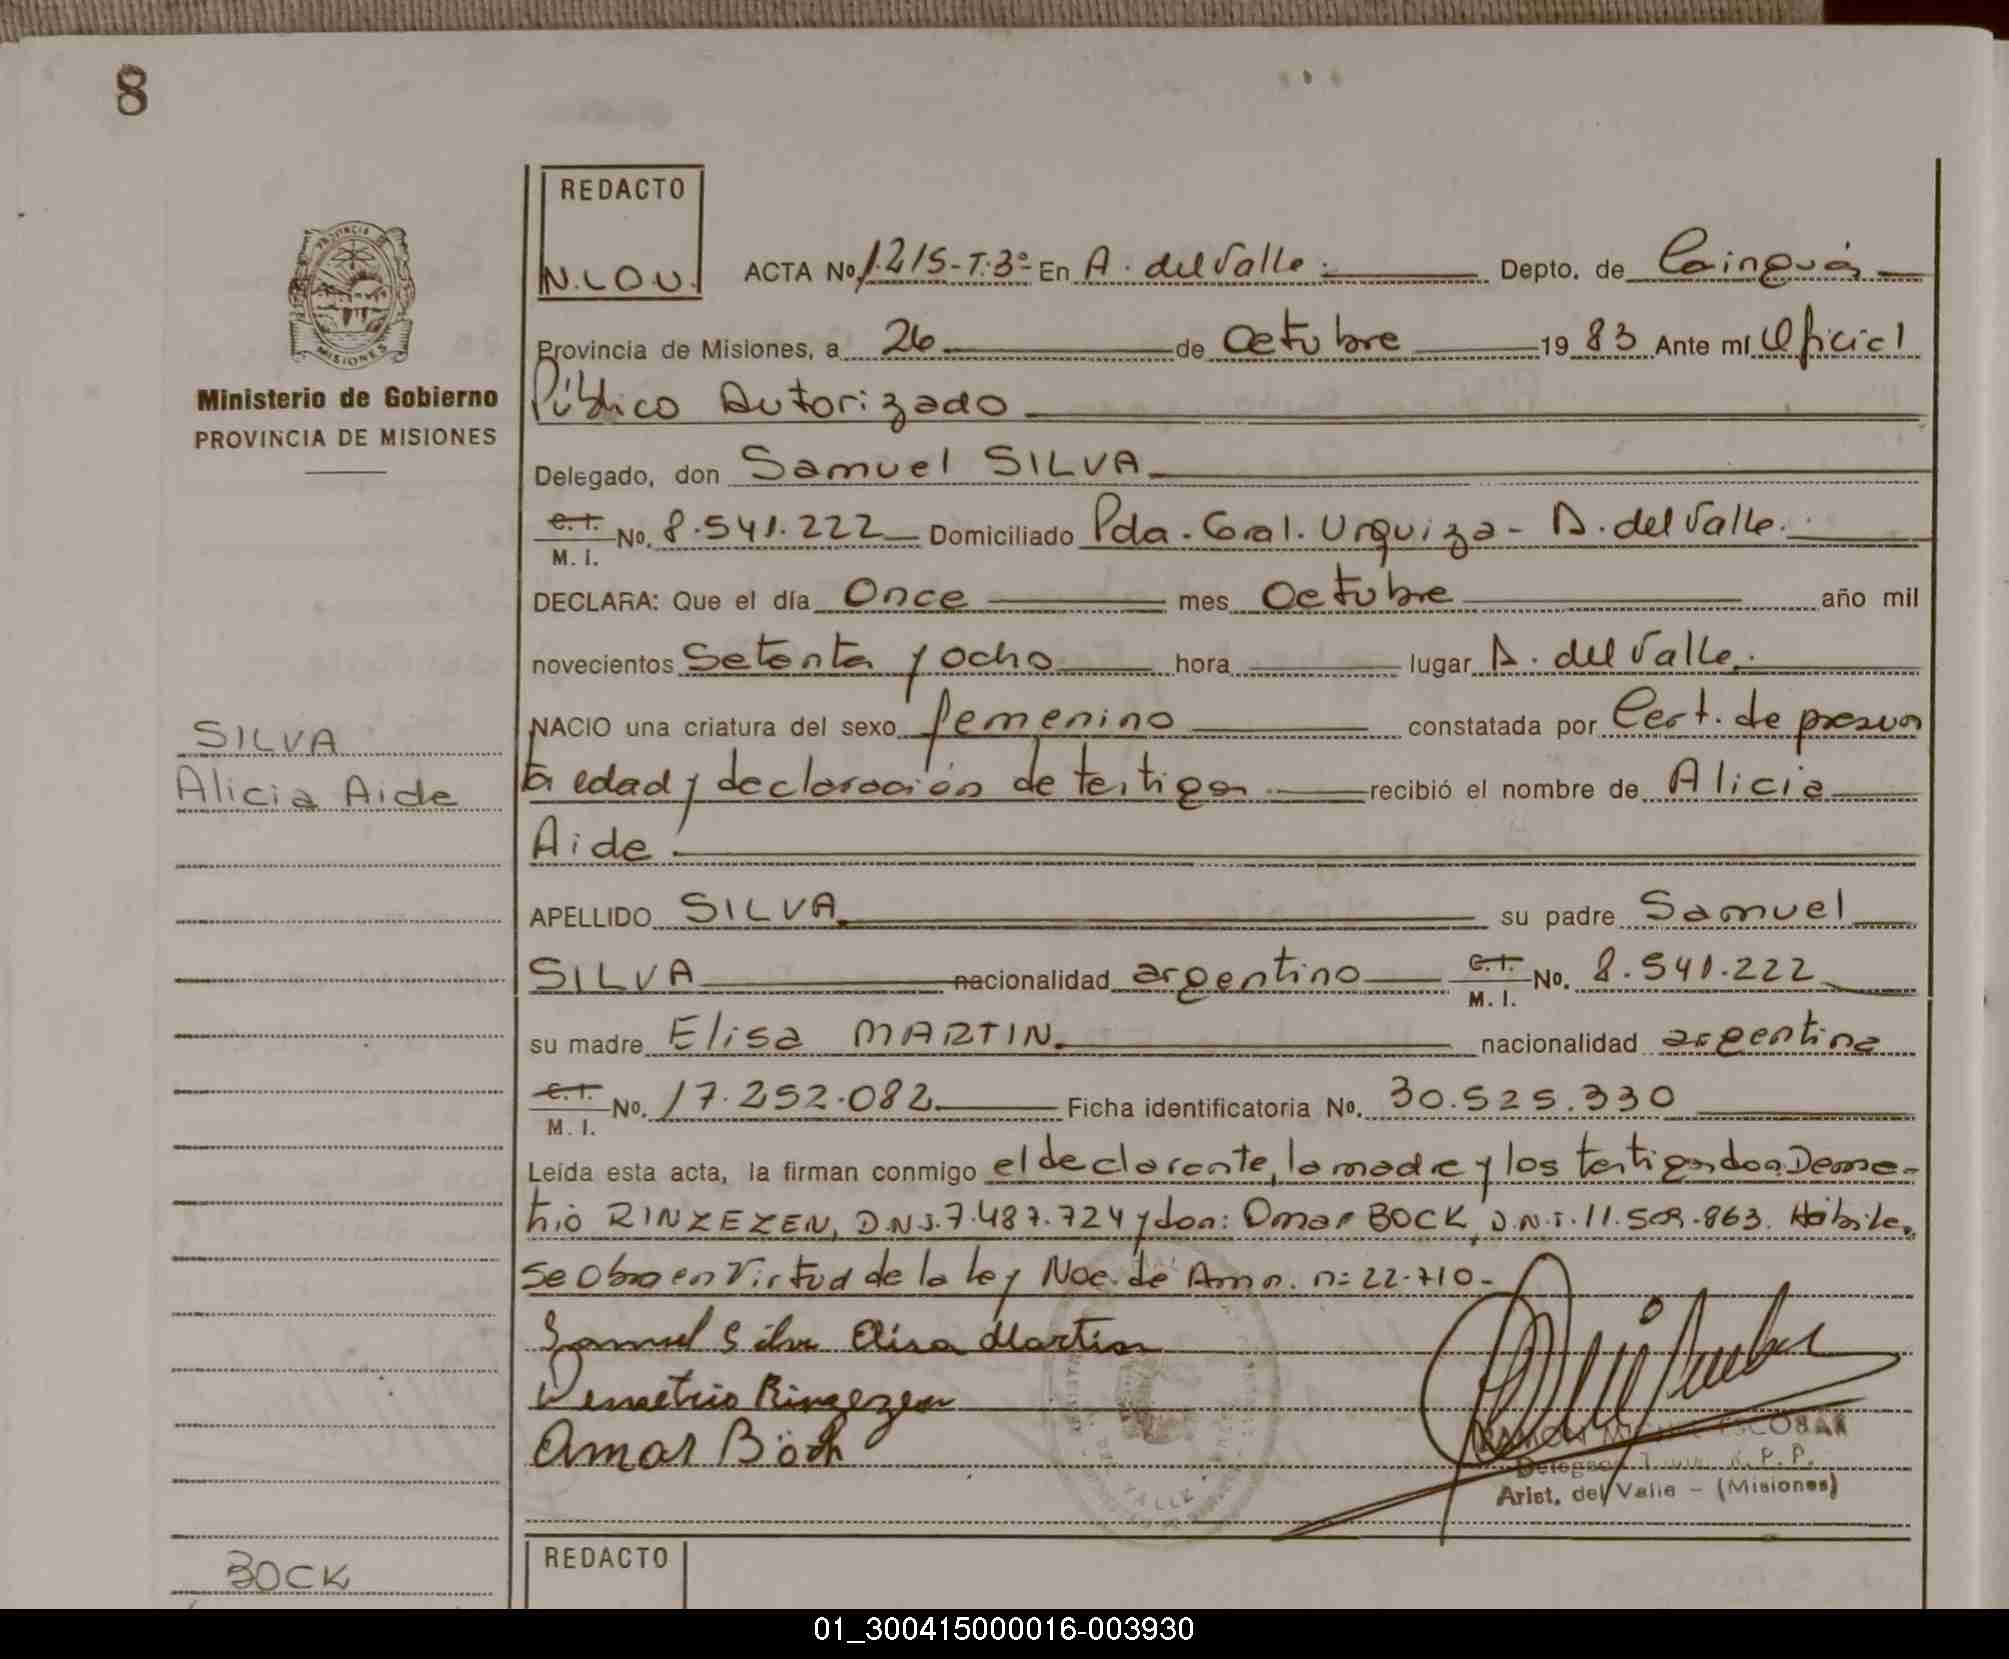 8
REDACTO
N.L.O.U.
PROVINCIA DE
MISIONES
Ministerio de Gobierno
PROVINCIA DE MISIONES
ACTA No 1.215-T:3º En A. del Valle. Depto. de Cainguás
Provincia de Misiones, a 26 de Octubre 19 83 Ante mí Oficial
Público Autorizado
Delegado, don Samuel SILVA
C.I. No. 8.541.222 Domiciliado Pda. Gral. Urquiza - A. del Valle.
M. I.
DECLARA: Que el día Once mes Octubre año mil
novecientos Setenta y ocho hora lugar A. del Valle.
NACIO una criatura del sexo femenino constatada por Cert. de presun
ta edad y declaración de testigos recibió el nombre de Alicia
Aide
SILVA
Alicia Aide
APELLIDO SILVA su padre Samuel
SILVA nacionalidad argentino C.I. No. 8.541.222
M. I.
su madre Elisa MARTIN. nacionalidad argentina
C.I. No. 17.252.082 Ficha identificatoria No. 30.525.330
M. I.
Leída esta acta, la firman conmigo el declarante, la madre y los testigos don Deme-
trio RINZEZEN, D.N.I. 7.487.724 y don: Omar BOCK, D.N.I. 11.509.863. Hábiles,
se Obro en Virtud de la ley Nac. de Amn. n= 22.710-
Samuel Silva Elisa Martin
Demetrio Rinzezen
Omar Böck
RAMON ESCOBAR
Arist. del Valle - (Misiones)
REDACTO
BOCK
01_300415000016-003930